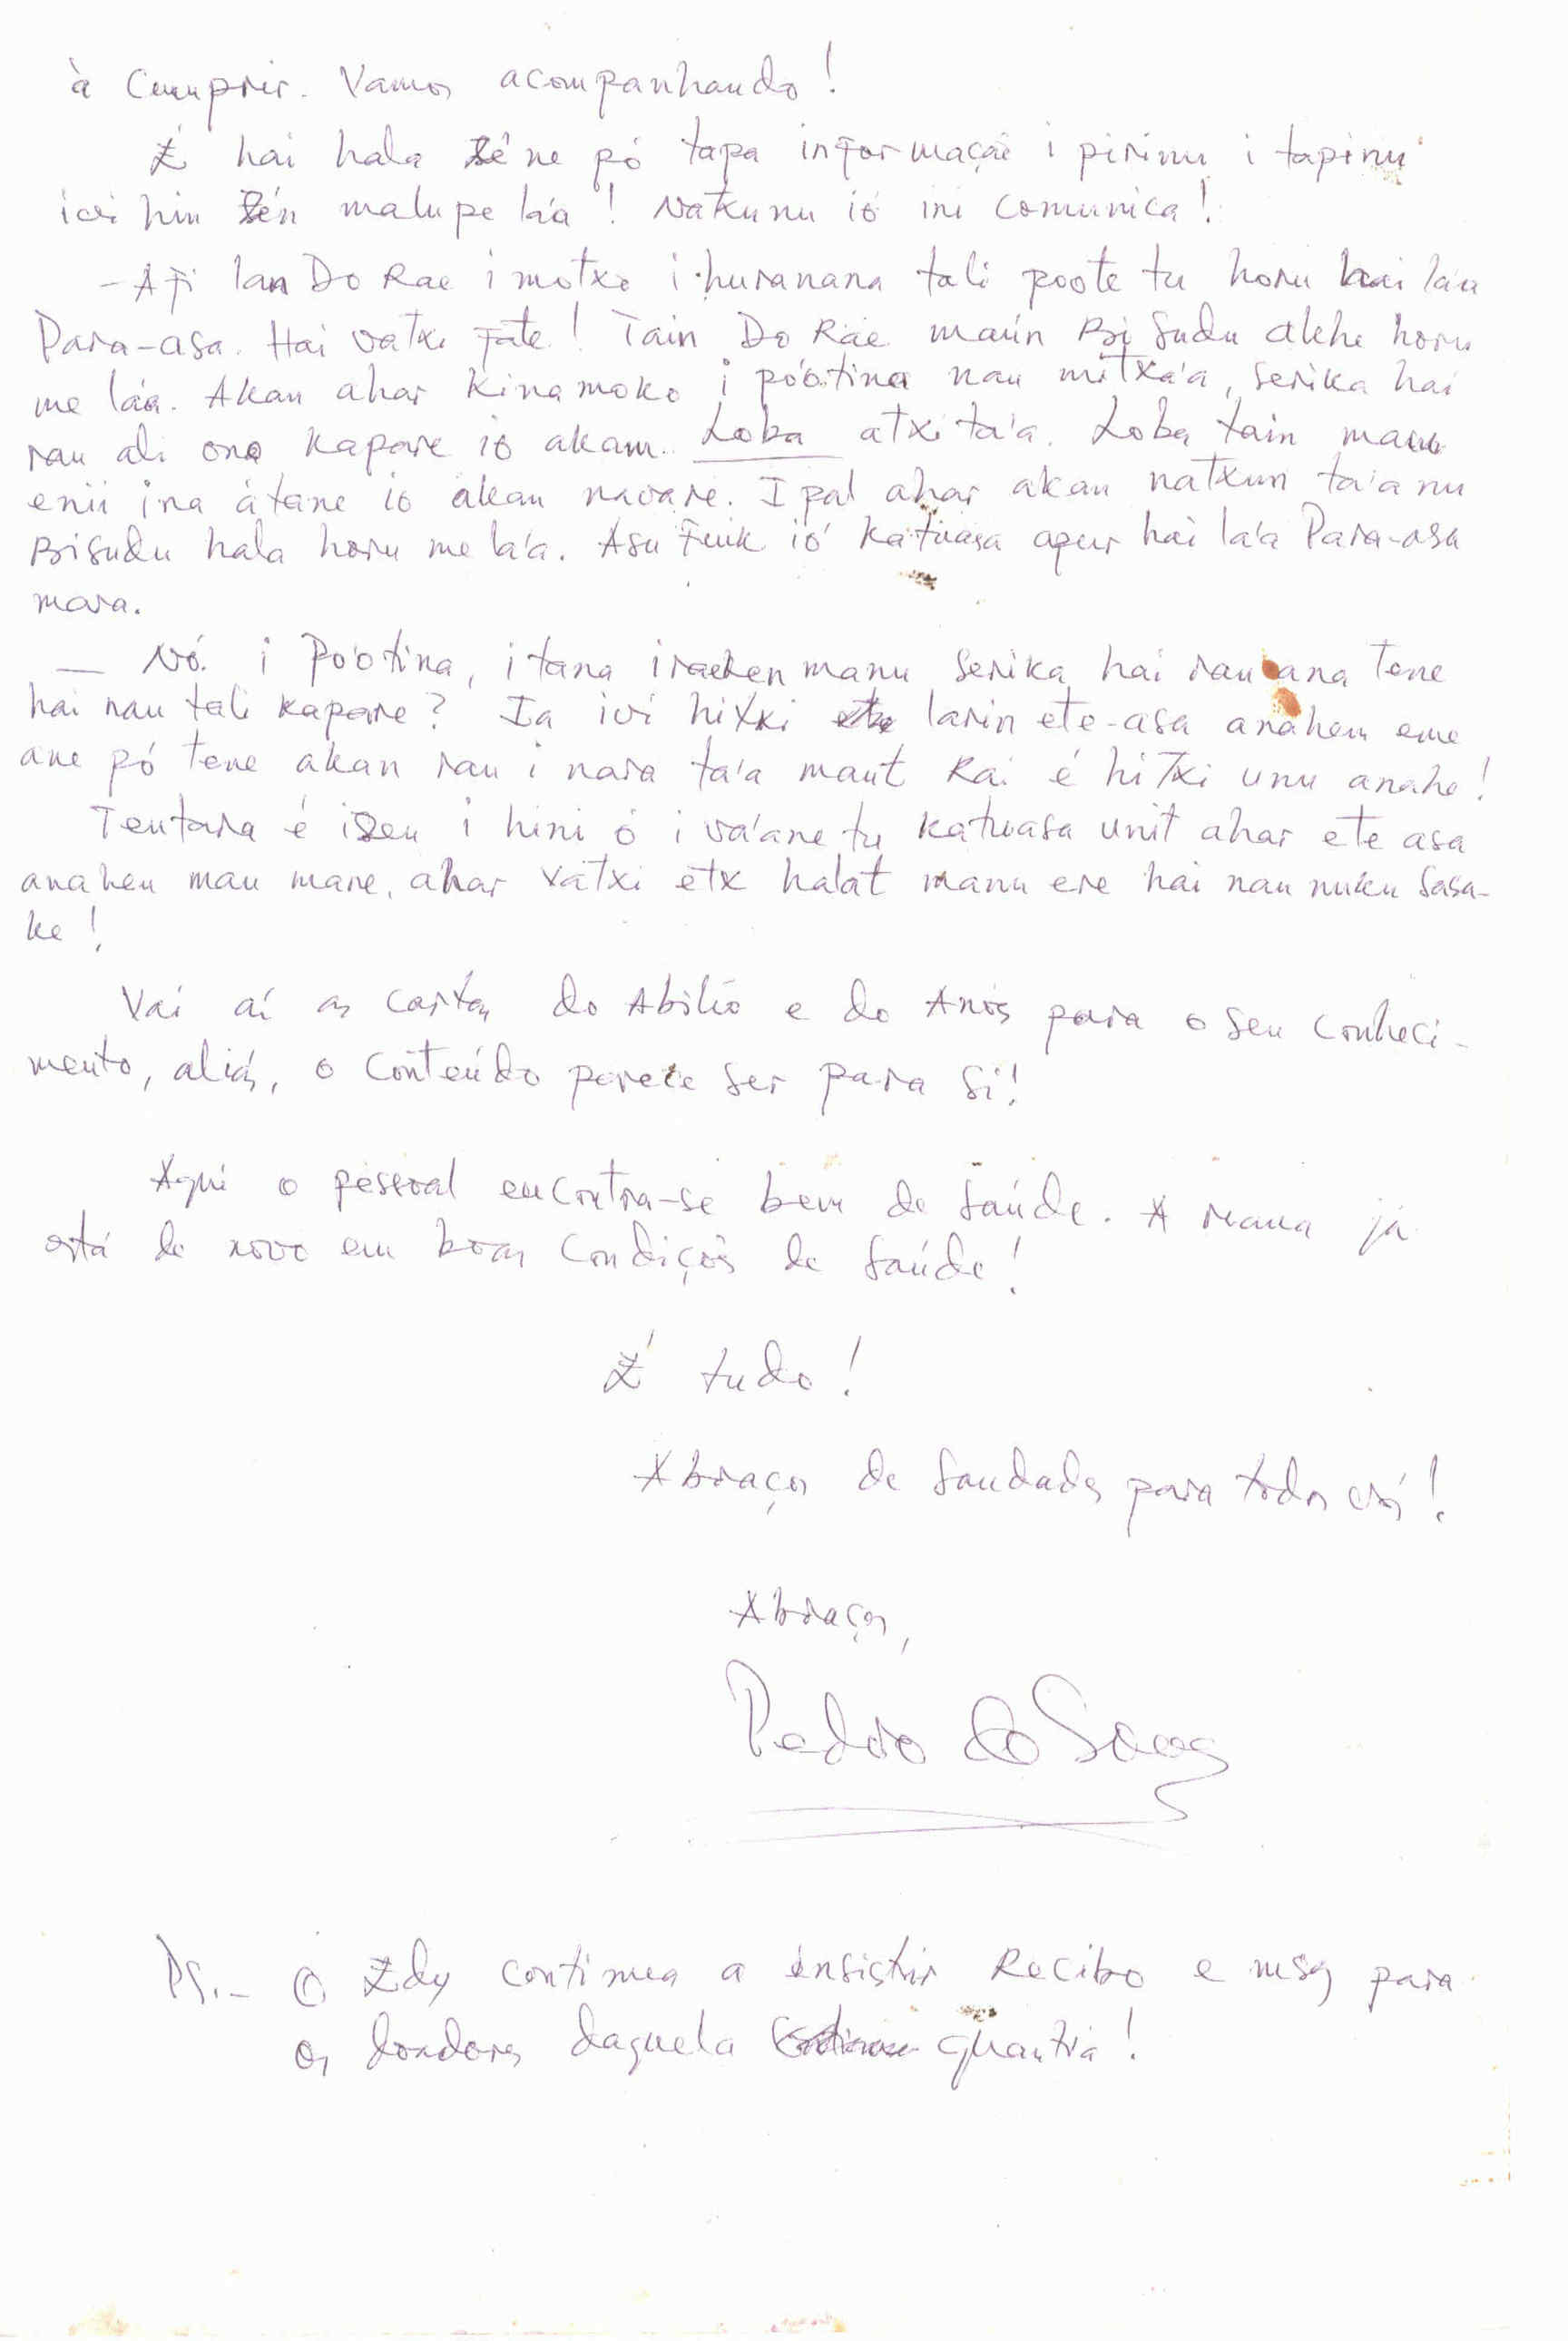 à cumprir. Vamos acompanhando!
É hai hala zéne pó tapa informação i pirinu i tapinu
ivi hin zén malupe la'a! Nakunu ió ini comunica!
- Afi lan Do Rae i motxo i huranana tali poote tu horu hai láa
Para-asa. Hai vatxi fate! Tain Do Rae maún Bi Sudu alehe horu
me láa. Akan ahar kinamoko i po'otina nau mitxa'a, serika hai
rau ali ona kapare ió akam. Loba atxi ta'a. Loba tain mau
enii ina átane ió akan navare. I pal ahar akan natxun ta'a nu
Bisudu hala horu me la'a. Asu fuik ió katuasa apur hai la'a Para-asa
mara.
- Nó. i Po'otina, i tana irachen manu serika hai rau ana tene
hai nau tali kapare? Ia ivi hitxi larin ete-asa anahem eme
ane pó tene akan rau i nara ta'a maut kai é hitxi unu anahe!
Tentara é isen i hini ó i va'ane tu katuasa unit ahar ete asa
anahen mau mare, ahar vátxi etx halat manu ere hai nau nuku sasa-
ke!
Vai aí as cartas do Abílio e do Anós para o seu conheci-
mento, aliás, o conteúdo parece ser para si!
Aqui o pessoal encontra-se bem de saúde. A mana já
está de novo em boas condições de saúde!
É tudo!
Abraços de saudades para todos vós!
Abraços,
Pedro do
Ps.- O Edy continua a insistir Recibo e msg para
os doadores daquela quantia!